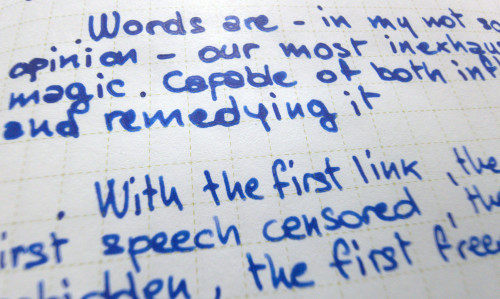 Words are - in my not so
opinion - our most inexhau
magic. Capable of both inf
and remedying it
. With the first link, the
irst speech censored, the
bidden, the first free